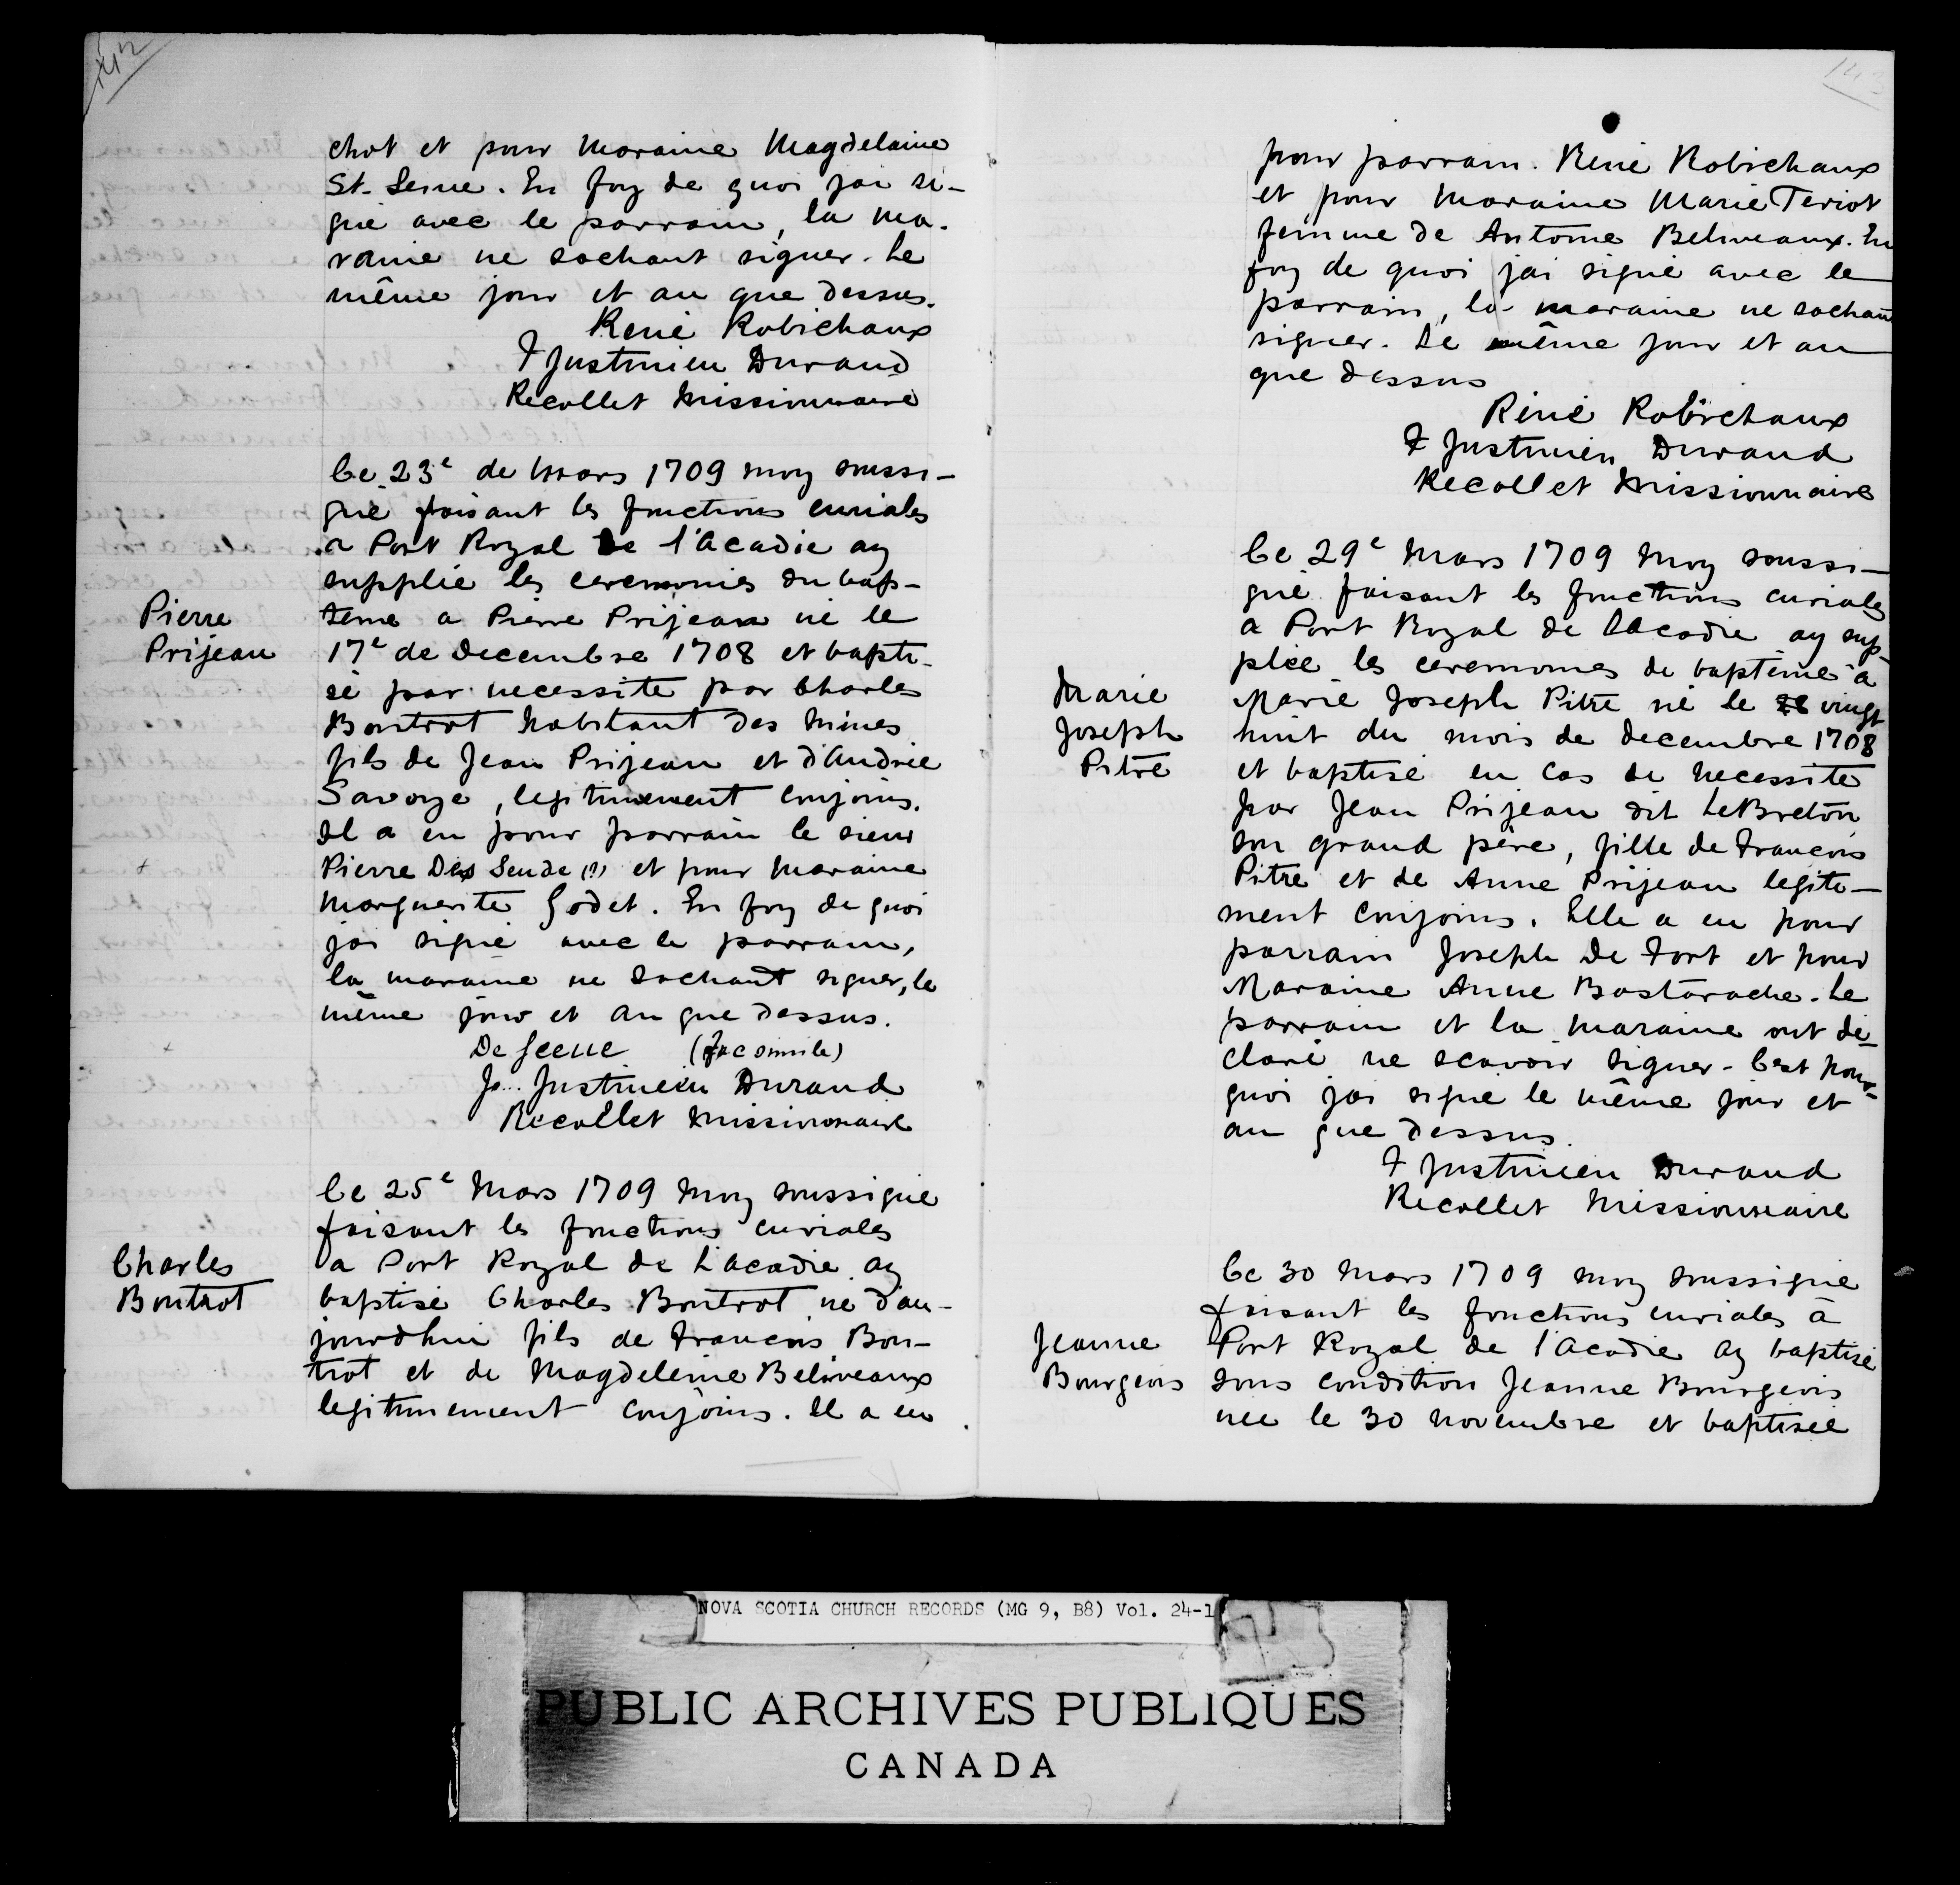 142
chot et pour Maraine Magdelaine
St. Sesne. En foy de quoi jai si-
gné avec le parrain, la ma-
raine ne sachant signer. Le
même jour et an que dessus.
René Robichaux
F Justinien Durand
Recollet Missionnaire
Ce 23e de Mars 1709 moy soussi-
gné faisant les fonctions curiales
a Port Royal De l'Acadie ay
supplié les ceremonies du bap-
Pierre
Prijeau
teme a Pierre Prijeau né le
17e de Decembre 1708 et bapti-
sé par necessité par Charles
Boutrot habitant des Mines
fils de Jean Prijeau et d'Andrée
Savoye, legitimement conjoins.
Il a eu pour parrain le sieur
+ Pierre Des Seude (?) et pour maraine
Marguerite Godet. En foy de quoi
jai signé avec le parrain,
la maraine ne sachant signer, le
même jour et an que dessus.
De (facsimile)
+
J... Justinien Durand
Recollet Missionnaire
Ce 25e Mars 1709 moy soussigné
faisant les fonctions curiales
Charles
Boutrot
a Port Royal de L'Acadie ay
baptisé Charles Boutrot né d'au-
jourdhui fils de Francois Bou-
trot et de Magdeleine Beliveaux
legitimement conjoins. Il a eu
143
pour parrain. René Robichaux
et pour Maraine Marie Teriot
femme de Antoine Beliveaux. En
foy de quoi jai signé avec le
parrain, la maraine ne sachan
signer. Le même jour et an
que dessus
René Robichaux
F Justinien Durand
Recollet Missionnaire
Ce 29e Mars 1709 moy soussi-
gné faisant les fonctions curiales
a Port Royal de LAcadie ay sup-
pleé les ceremonies de baptème à
Marie
Joseph
Pitre
Marie Joseph Pitre né le vingt
huit du mois de decembre 1708
et baptisé en cas de necessité
par Jean Prijeau dit LeBreton
son grand père, fille de Francois
Pitre et de Anne Prijeau legite-
ment conjoins. Elle a eu pour
parrain Joseph De Fort et pour
Maraine Anne Bastarache. Le
parrain et la maraine ont dé-
claré ne scavoir signer. C'est pour-
quoi jai signé le même jour et
an que dessus.
F Justinien Durand
Recollet Missionnaire
Ce 30 Mars 1709 moy soussigné
faisant les fonctions curiales à
Jeanne
Bourgeois
Port Royal de l'Acadie ay baptisé
sous condition Jeanne Bourgeois
née le 30 novembre et baptisée
NOVA SCOTIA CHURCH RECORDS (MG 9, B8) Vol. 24-1
PUBLIC ARCHIVES PUBLIQUES
CANADA